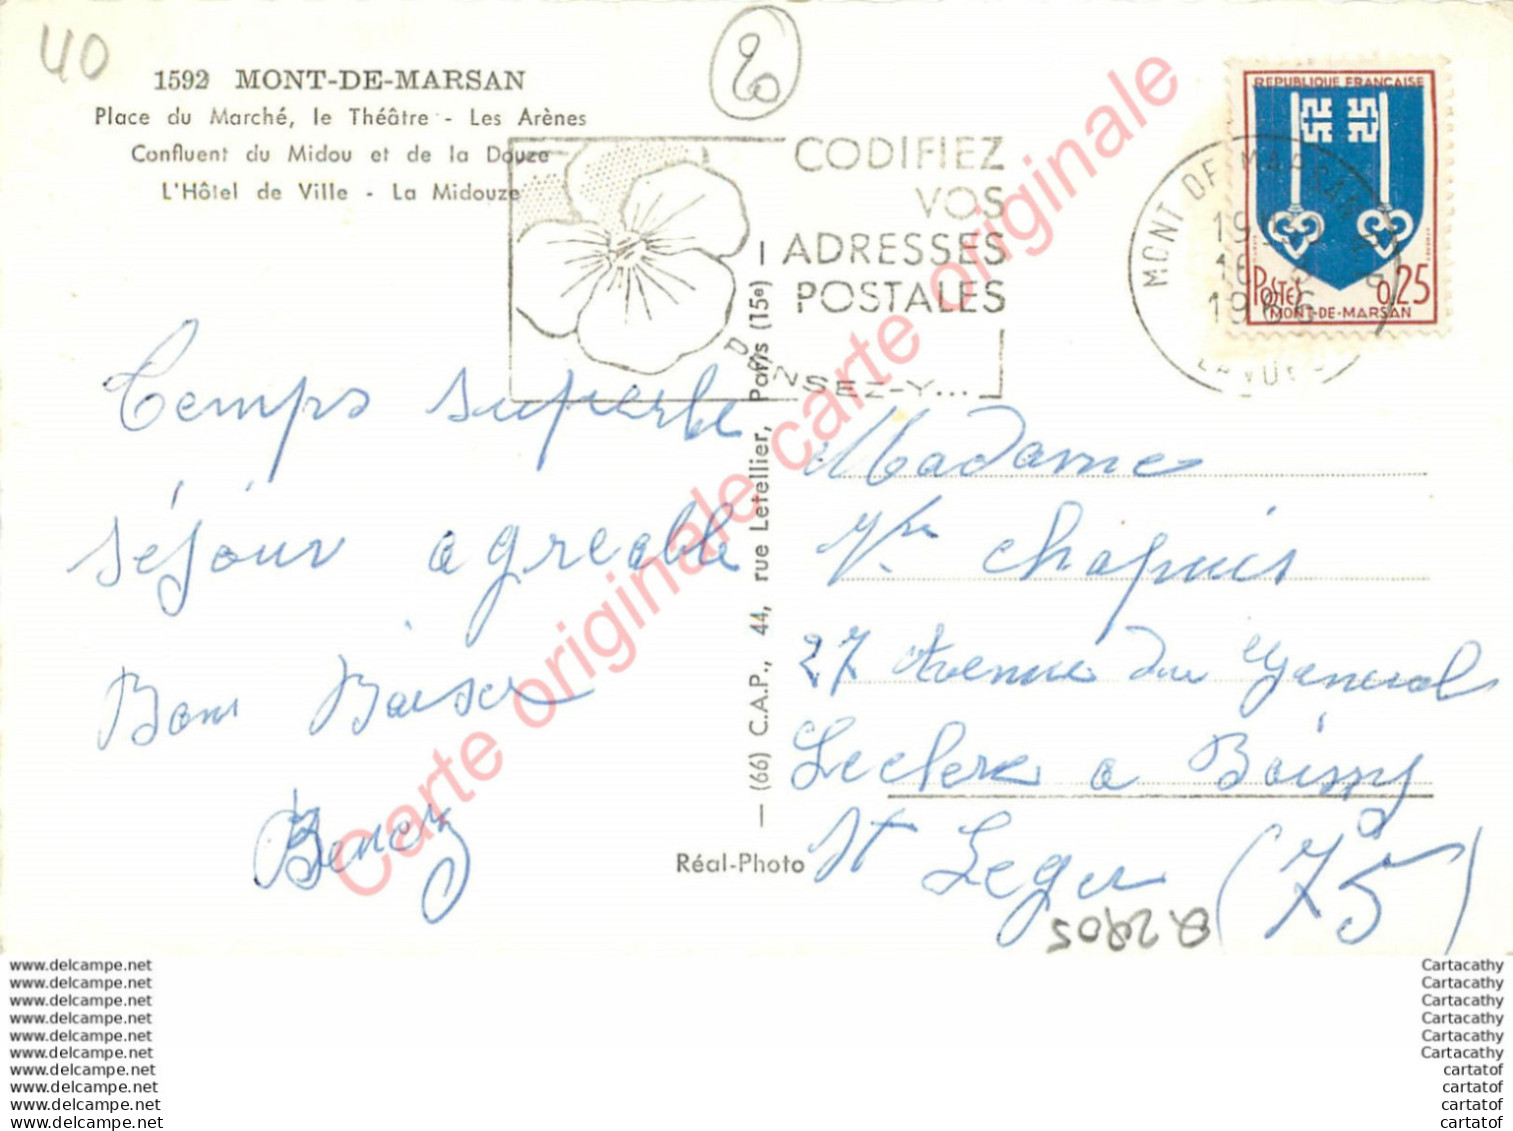 40
20
1592 MONT-DE-MARSAN
Place du Marché, le Théâtre - Les Arènes
Confluent du Midou et de la Douze
L'Hôtel de Ville - La Midouze
CODIFIEZ
VOS
ADRESSES
POSTALES
PENSEZ-Y...
REPUBLIQUE FRANCAISE
POSTES 0,25
MONT-DE-MARSAN
MONT DE MARSAN
19
16
1966
LANDES
Temps superbe
séjour agreable
Bons Baiser
Madame
Vve Chapuis
27 Avenue du General
Leclerc a Boissy
St Leger (75)
(66) C.A.P., 44, rue Letellier, Paris (15e)
Réal-Photo
Carte originale carte originale
www.delcampe.net
www.delcampe.net
www.delcampe.net
www.delcampe.net
www.delcampe.net
www.delcampe.net
www.delcampe.net
www.delcampe.net
www.delcampe.net
www.delcampe.net
Cartacathy
Cartacathy
Cartacathy
Cartacathy
Cartacathy
Cartacathy
cartatof
cartatof
cartatof
cartatof